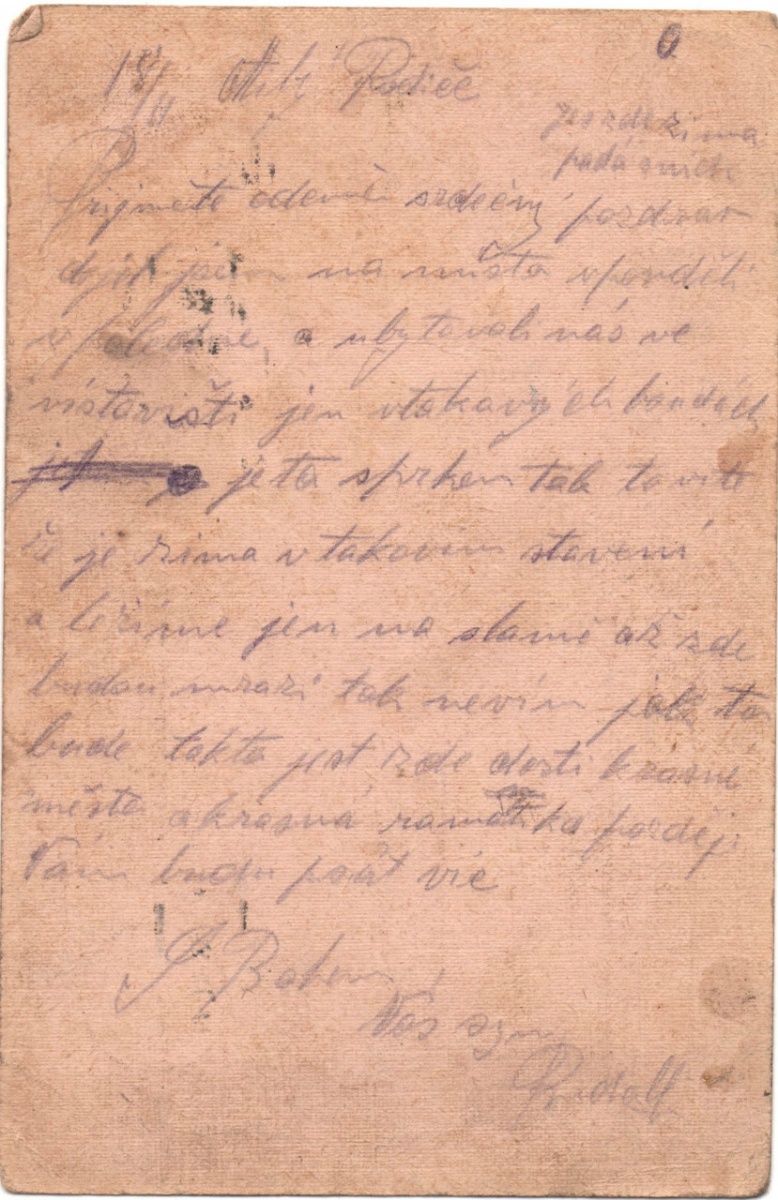 18/11 Milý Rodiče
je zde zima
padá snich
Přijměte odemě srdečný pozdrav
dojel jsem na místo vpondělí
v poledne, a ubytovali nás ve
vístavišti jen vtakových boudách
je to sprken tak to víte
že je zima v takovem stavení
a ležíme jen na slamě až zde
budou mrazi tak nevím jak to
bude takto jest zde dosti krasné
město a krasná romatika pozděj
Vám budu psat víc
S Bohem
Váš syn
Rudolf